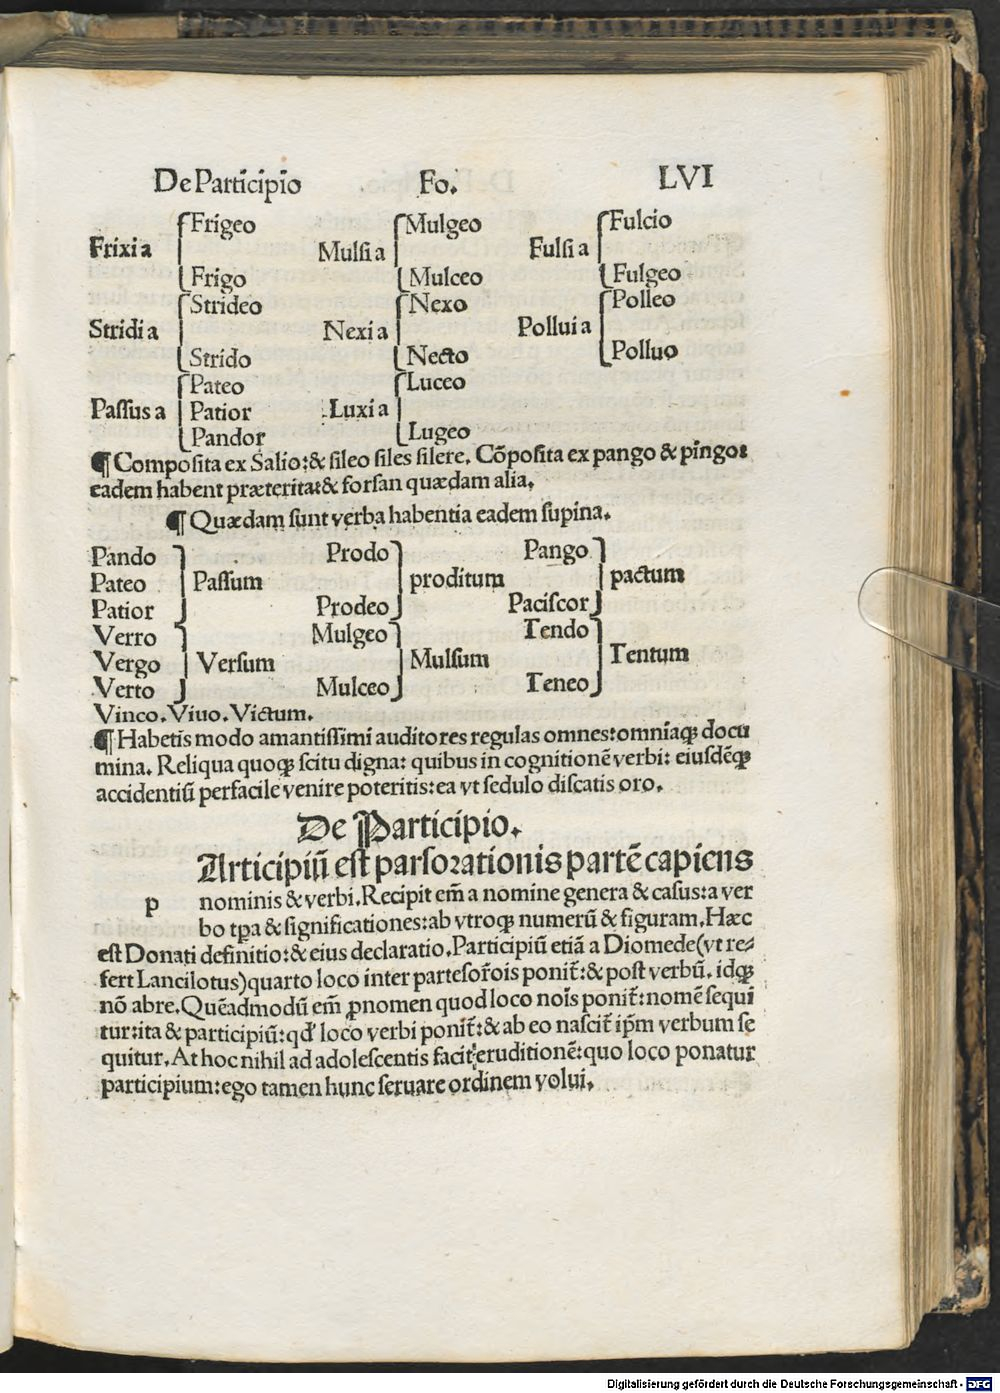 De Participio Fo. LVI
Frigeo Mulgeo Fulcio
Frixi a Mulsi a Fulsi a
Frigo Mulceo Fulgeo
Strideo Nexo Polleo
Stridi a Nexi a Pollui a
Strido Necto Polluo
Pateo Luceo
Passus a Patior Luxi a
Pandor Lugeo
¶ Composita ex Salio: & sileo siles silere. Cōposita ex pango & pingo:
eadem habent præterita: & forsan quædam alia.
¶ Quædam sunt verba habentia eadem supina.
Pando Prodo Pango
Pateo Passum proditum pactum
Patior Prodeo Paciscor
Verro Mulgeo Tendo
Vergo Versum Mulsum Tentum
Verto Mulceo Teneo
Vinco. Viuo. Victum.
¶ Habetis modo amantissimi auditores regulas omnes: omniaꝗ docu
mina. Reliqua quoꝗ scitu digna: quibus in cognitionē verbi: eiusdēꝗ
accidentiū perfacile venire poteritis: ea vt sedulo discatis oro.
De Participio.
Articipiū est pars orationis partē capiens
p nominis & verbi. Recipit em̄ a nomine genera & casus: a ver
bo tp̄a & significationes: ab vtroꝗ numerū & figuram. Hæc
est Donati definitio: & eius declaratio. Participiū etiā a Diomede (vt re-
fert Lancilotus) quarto loco inter partes or̄ois ponit̄: & post verbū. idꝗ
nō abre. Quēadmodū em̄ ꝓnomen quod loco nois ponit̄: nomē sequi
tur: ita & participiū: qd' loco verbi ponit̄: & ab eo nascit̄ ip̄m verbum se
quitur. At hoc nihil ad adolescentis facit eruditionē: quo loco ponatur
participium: ego tamen hunc seruare ordinem volui.
Digitalisierung gefördert durch die Deutsche Forschungsgemeinschaft - DFG